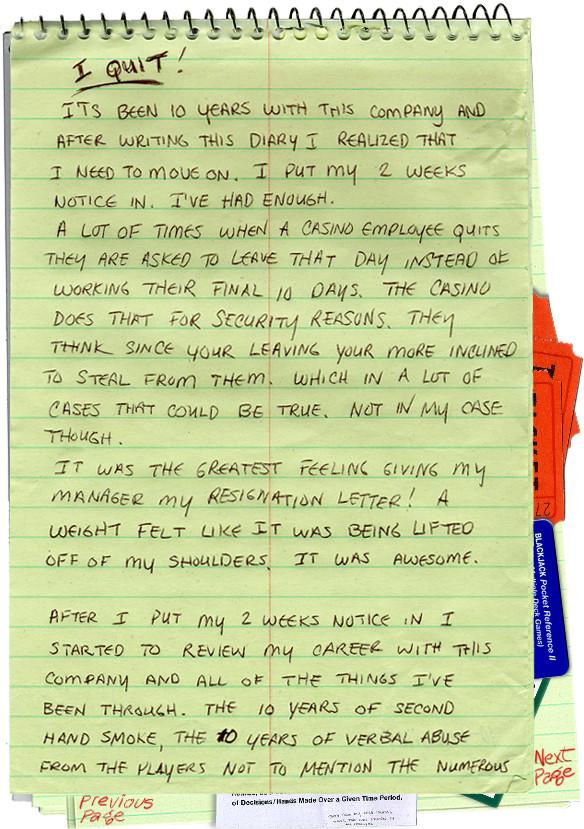 I QUIT!
ITS BEEN 10 YEARS WITH THIS COMPANY AND
AFTER WRITING THIS DIARY I REALIZED THAT
I NEED TO MOVE ON. I PUT MY 2 WEEKS
NOTICE IN. I'VE HAD ENOUGH.
A LOT OF TIMES WHEN A CASINO EMPLOYEE QUITS
THEY ARE ASKED TO LEAVE THAT DAY INSTEAD OF
WORKING THEIR FINAL 10 DAYS. THE CASINO
DOES THAT FOR SECURITY REASONS. THEY
THINK SINCE YOUR LEAVING YOUR MORE INCLINED
TO STEAL FROM THEM. WHICH IN A LOT OF
CASES THAT COULD BE TRUE. NOT IN MY CASE
THOUGH.
IT WAS THE GREATEST FEELING GIVING MY
MANAGER MY RESIGNATION LETTER! A
WEIGHT FELT LIKE IT WAS BEING LIFTED
OFF OF MY SHOULDERS. IT WAS AWESOME.
AFTER I PUT MY 2 WEEKS NOTICE IN I
STARTED TO REVIEW MY CAREER WITH THIS
COMPANY AND ALL OF THE THINGS I'VE
BEEN THROUGH. THE 10 YEARS OF SECOND
HAND SMOKE, THE 10 YEARS OF VERBAL ABUSE
FROM THE PLAYERS NOT TO MENTION THE NUMEROUS
27
BLACKJACK Pocket Reference II
Multiple Deck Games)
Next
Page
Previous
Page
of Decisions/Hands Made Over a Given Time Period.